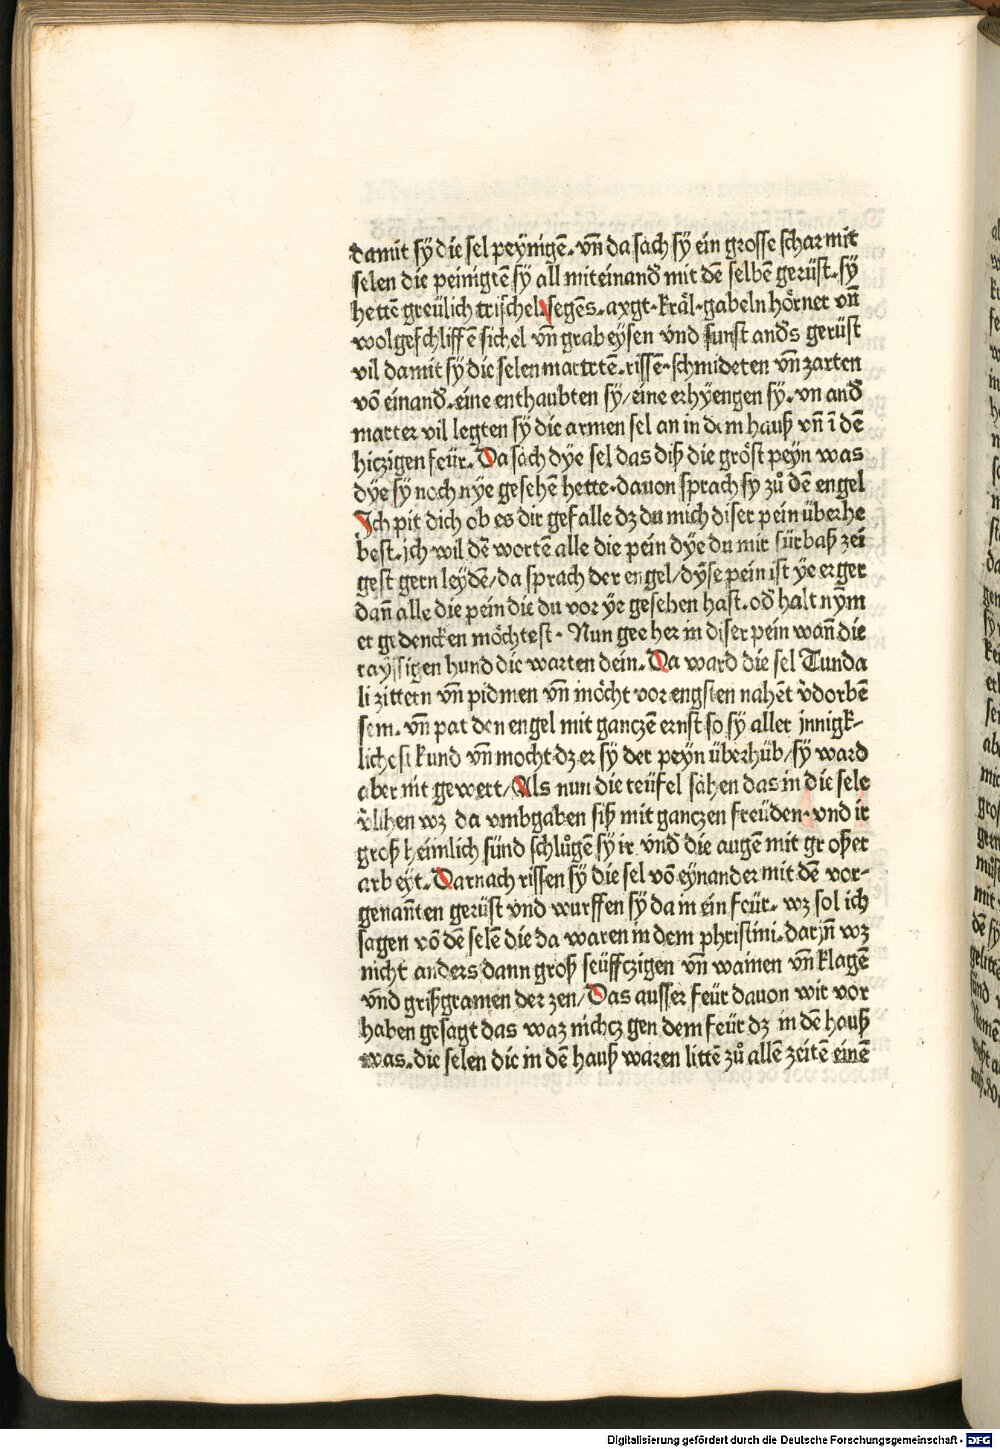 damit sÿ die sel peÿnigē. vn̄ da sach sÿ ein grosse schar mit
selen die peinigtē sÿ all miteinand mit dē selbē gerüst. sÿ
hettē greülich trischel segēs. axgt. kräl. gabeln hörner vn̄
wolgeschliffē sichel vn̄ grabeysen vnd sunst anđs gerüst
vil damit sÿ die selen martrtē. rissē. schmideten vn̄ zarten
vō einanđ. eine enthaubten sÿ/ eine erhÿengen sÿ. vn anđ
marter vil legten sÿ die armen sel an in dem hauß vn̄ ī dē
hiczigen feür. Da sach dÿe sel das diß die gröst peÿn was
dÿe sÿ noch nÿe gesehē hette. dauon sprach sy zů dē engel
Ich pit dich ob es dir gefalle dz du mich diser pein überhe
best. ich wil dē wortē alle die pein dÿe du mir fürbaß zei
gest gern leÿdē/ da sprach der engel/ dÿse pein ist ÿe erger
dan̄ alle die pein die du vor ÿe gesehen hast. ođ halt nÿm
er gedencken möchtest. Nun gee her in diser pein wan̄ die
raÿssigen hund die warten dein. Da ward die sel Tunda
li zittern vn̄ pidmen vn̄ möcht vor engsten nahēt v̄dorbē
sein. vn̄ pat den engel mit ganczē ernst so sÿ aller jnnigk-
lichest kund vn̄ mocht dz er sÿ der peÿn überhüb/ sÿ ward
aber nit gewert/ Als nun die teüfel sahen das in die sele
v̄lihen wz da vmbgaben siß mit ganczen freüden. vnd ir
groß heimlich sünd schlůgē sÿ ir vnd die augē mit großer
arbeÿt. Darnach rissen sÿ die sel vō eÿnander mit dē vor-
genan̄ten gerüst vnd wurffen sÿ da in ein feür. wz sol ich
sagen vō dē selē die da waren in dem phristini. darjn̄ wz
nicht anders dann groß seüffczigen vn̄ wainen vn̄ klagē
vnd grißgramen der zen/ Das ausser feür dauon wir vor
haben gesagt das waz nichcz gen dem feür dz in dē hauß
was. die selen die in dē hauß waren littē zů allē zeitē einē
Digitalisierung gefördert durch die Deutsche Forschungsgemeinschaft - DFG